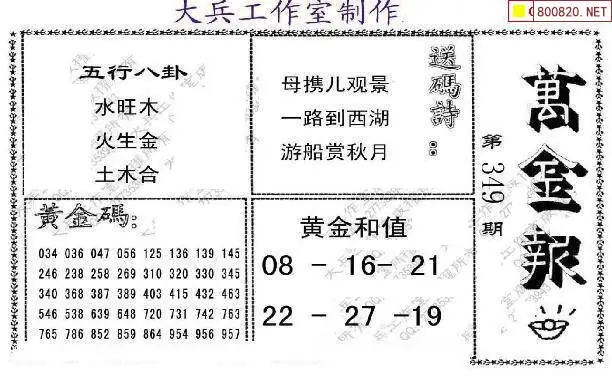 大兵工作室制作
800820.NET
五行八卦
水旺木
火生金
土木合
送碼詩：
母携儿观景
一路到西湖
游船赏秋月
萬金報
第349期
黃金碼:
034 036 047 056 125 136 139 145
246 238 258 269 310 320 330 345
340 368 387 389 403 415 432 463
546 538 639 648 720 731 742 763
765 786 852 859 864 954 956 957
黄金和值
08 - 16- 21
22 - 27 -19